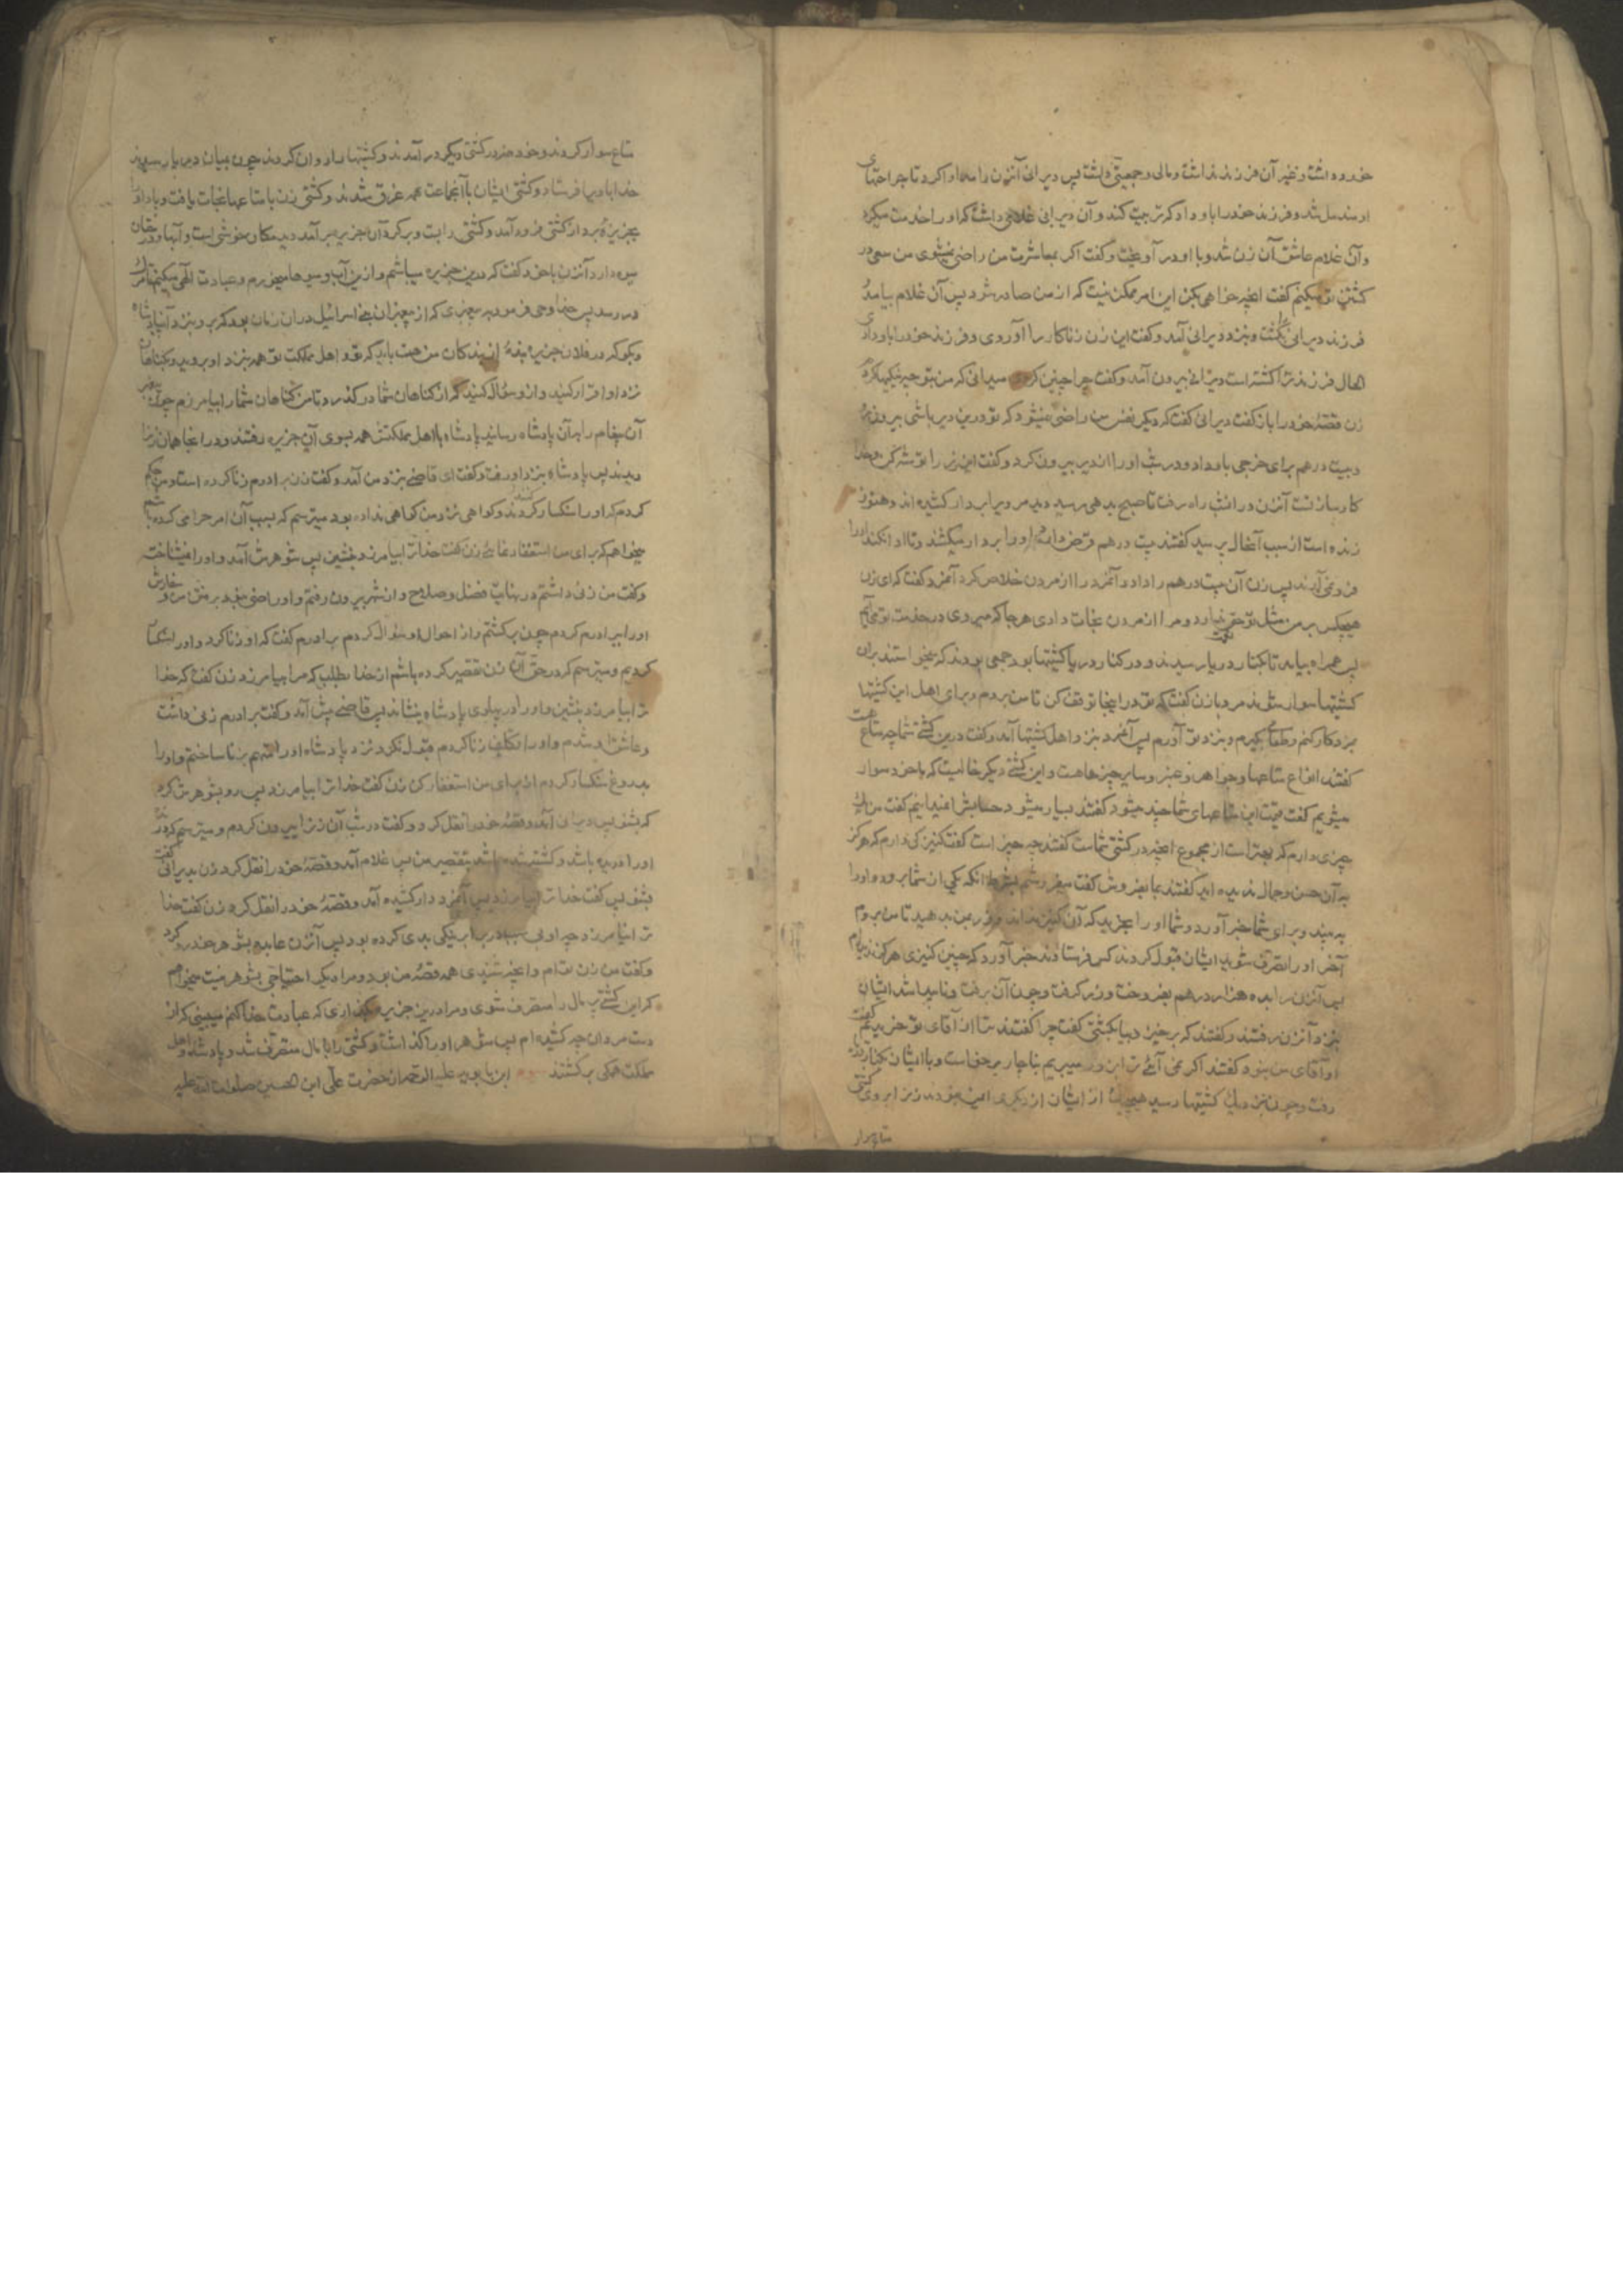 خورد داشت و غیر آن فرزند نداشت و مالی و جمعیتی داشت پس دیرانی آنزن را مداوا کرد تا جراحتهای
او مندمل شد و فرزند خود را باو داد که تربیت کند و آن دیرانی غلامی داشت که او را خدمت میکرد
و آن غلام عاشق آن زن شد و با او در آویخت و گفت اگر بمعاشرت من راضی نمیشوی من سعی در
کشتن تو میکنم گفت آنچه خواهی بکن این امر ممکن نیست که از من صادر شود پس آن غلام بیامد و
فرزند دیرانی را بکشت و بنزد دیرانی آمد و گفت این زن زناکار را آوردی و فرزند خود را باو دادی
الحال فرزند ترا کشته است دیرانی بیرون آمد و گفت چرا چنین کردی میدانی که من بتو چه نیکیها کردم
زن قصه خود را باز گفت دیرانی گفت که دیگر نفس من راضی نمیشود که تو درین دیر باشی بیرون رو
و بیست درهم برای خرجی باو داد و در شب او را از دیر بیرون کرد و گفت این زر را توشه کن و خدا
کارساز تست آنزن در آن شب راه رفت تا صبح بدهی رسید دید مردی را بر دار کشیده اند و هنوز
زنده است از سبب آنحال پرسید گفتند بیست درهم قرض دارد او را بر دار میکشند و تا ادا نکند او را
فرو نمی آورند پس زن آن بیست درهم را داد و آنمرد را از مردن خلاص کرد آنمرد گفت که ای زن
هیچکس بر من مثل تو حق نعمت ندارد و مرا از مردن نجات دادی هر جا که میروی در خدمت تو می آیم
پس همراه بیامد تا بکنار دریا رسیدند و در کنار دریا کشتیها بود و جمعی بودند که میخواستند بران
کشتیها سوار شوند مرد بازن گفت که تو در اینجا توقف کن تا من بروم و برای اهل این کشتیها
بمزد کار کنم و طعام بگیرم و بنزد تو آورم پس آنمرد بنزد اهل کشتیها آمد و گفت درین کشتی شما چه متاع است
گفتند انواع متاعها و جواهر و عنبر و سایر چیزهاست و این کشتی دیگر خالیست که ما خود سوار
میشویم گفت قیمت این متاعهای شما چند میشود گفتند بسیار میشود حسابش نمیدانیم گفت من یک
چیزی دارم که بهتر است از مجموع آنچه در کشتی شماست گفتند چه چیز است گفت کنیزکی دارم که هرگز
به آن حسن و جمال ندیده اید گفتند بما بفروش گفت میفروشم بشرط آنکه یکی از شما برود و او را
به بیند و برای شما خبر آورد و شما او را بخرید که آن کنیز نداند و زر بمن بدهید تا من بروم
آخر او را تصرف شوید ایشان قبول کردند کس فرستادند خبر آورد که چنین کنیزی هرگز ندیده ام
پس آنزن را بده هزار درهم بفروخت و زر گرفت و چون آن برفت و ناپیدا شد ایشان
بنزد آنزن رفتند و گفتند که برخیز و بیا بکشتی گفت چرا گفتند ترا از آقای تو خریدیم گفت
او آقای من نبود گفتند اگر نمی آئی ترا بزور میبریم بناچار برخاست و با ایشان بکنار دریا
رفت و چون بنزدیک کشتیها رسید هیچیک از ایشان از دیگری ایمن نبودند زن را بروی کشتی
متاع سوار
متاع سوار کردند و خود در کشتی دیگر در آمدند و کشتیها را روان کردند چون بمیان دریا رسیدند
خدا بادی فرستاد و کشتی ایشان با آنجماعت همه غرق شدند و کشتی زن با متاعها نجات یافت و باد او را
بجزیره برد از کشتی فرود آمد و کشتی را بست و بر گرد آن جزیره بر آمد دید مکان خوشی است و آبها و درختان
میوه دارد آنزن با خود گفت که درین جزیره میباشم و ازین آب و میوها میخورم و عبادت الهی میکنم تا مرگ
در رسد پس خدا وحی فرمود به پیغمبری که از پیغمبران بنی اسرائیل در آن زمان بود که برو بنزد آن پادشاه
و بگو که در فلان جزیره بنده از بندگان من هست باید که تو و اهل مملکت تو همه بنزد او بروید و بگناهان
نزد او اقرار کنید و از او سؤال کنید که از گناهان شما درگذرد تا من گناهان شما را بیامرزم چون پیغمبر
آن پیغام را به آن پادشاه رسانید پادشاه با اهل مملکتش همه بسوی آن جزیره رفتند و در آنجا همان زن را
دیدند پس پادشاه بنزد او رفت و گفت ای قاضی بنزد من آمد و گفت زن برادرم زنا کرده است و من حکم
کردم که او را سنگسار کنند و گواهی نزد من گواهی نداده بود میترسم که بسبب آن امر حرامی کرده باشم
میخواهم که برای من استغفار نمائی زن گفت خدا ترا بیامرزد بنشین پس شوهرش آمد و او را نمیشناخت
و گفت من زنی داشتم در نهایت فضل و صلاح و از شهر بیرون رفتم و او راضی نبود برفتن من و سفارش
او را ببرادرم کردم چون برگشتم و از احوال او سؤال کردم برادرم گفت که او زنا کرد و او را سنگسار
کردیم و میترسم که در حق آن زن تقصیر کرده باشم از خدا بطلب که مرا بیامرزد زن گفت که خدا
ترا بیامرزد بنشین و او را در پهلوی پادشاه بنشاند پس قاضی پیش آمد و گفت برادرم زنی داشت
و عاشق او شدم و او را تکلیف زنا کردم قبول نکرد نزد پادشاه او را متهم بزنا ساختم و او را
بدروغ سنگسار کردم از برای من استغفار کن زن گفت خدا ترا بیامرزد پس رو بشوهرش کرد
که بشنو پس دیرانی آمد و قصه خود را نقل کرد و گفت در شب آن زن را بیرون کردم و میترسم که درنده
او را دریده باشد و کشته شده باشد بتقصیر من پس غلام آمد و قصه خود را نقل کرد زن بدیرانی گفت
بشنو پس گفت خدا ترا بیامرزد پس آنمرد دار کشیده آمد و قصه خود را نقل کرد زن گفت خدا
ترا نیامرزد چه او بی سبب در برابر نیکی بدی کرده بود پس آنزن عابده بشوهر خود رو کرد
و گفت من زن توام و آنچه شنیدی همه قصه من بود و مرا دیگر احتیاجی بشوهر نیست میخواهم
که این کشتی پر مال را متصرف شوی و مرا درین جزیره بگذاری که عبادت خدا کنم میبینی که از
دست مردان چه کشیده ام پس شوهر او را گذاشت و کشتی را با مال متصرف شد و پادشاه و اهل
مملکت همگی برگشتند ابن بابویه علیه الرحمه از حضرت علی ابن الحسین صلوات الله علیه